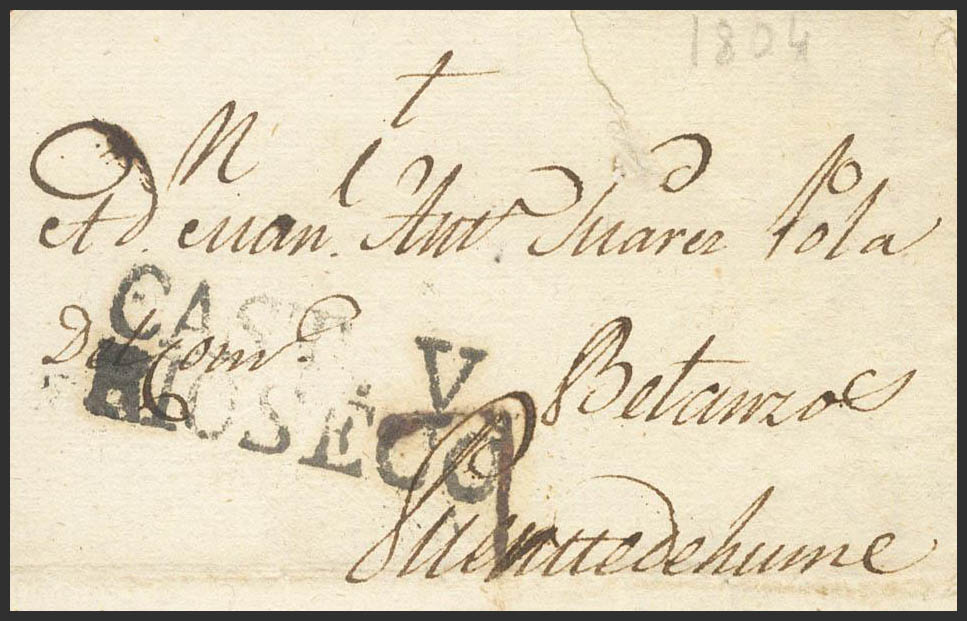 1804
†
A D. Man.l Ant.o Suarez Pola
Del Com.o
CAST V
RIOSECO
Betanzos
Puenttedehume